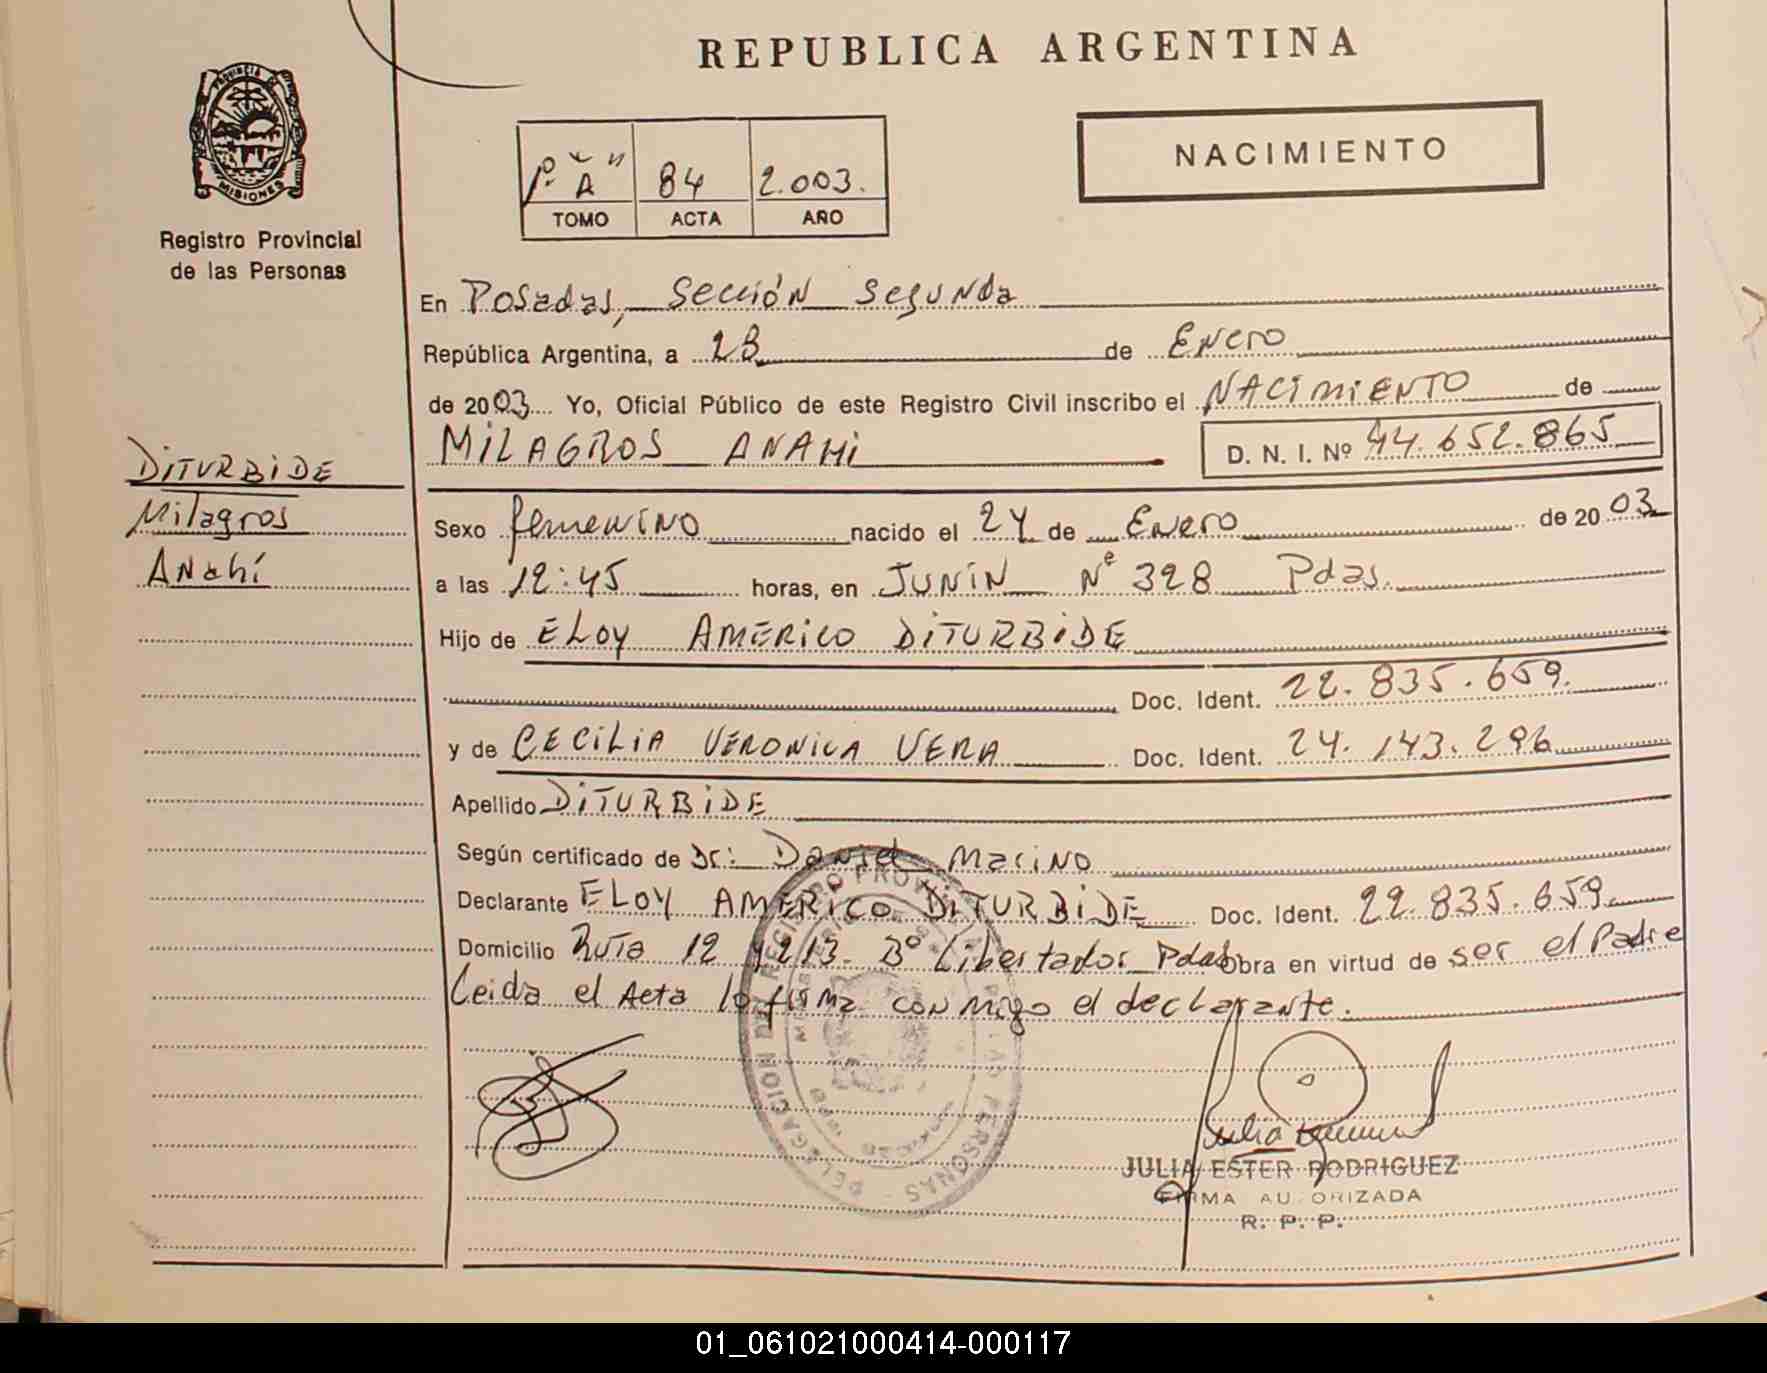 REPUBLICA ARGENTINA
PROVINCIA DE
MISIONES
Registro Provincial
de las Personas
1º "A" 84 2.003.
TOMO ACTA AÑO
NACIMIENTO
En Posadas, Sección Segunda
República Argentina, a 28 de Enero
de 2003 Yo, Oficial Público de este Registro Civil inscribo el NACIMIENTO de
MILAGROS ANAHI D. N. I. Nº 44.652.865
DITURBIDE
Milagros
Anahí
Sexo femenino nacido el 24 de Enero de 2003
a las 12:45 horas, en JUNIN Nº 328 Pdas.
Hijo de ELOY AMERICO DITURBIDE
Doc. Ident. 22.835.659.
y de CECILIA VERONICA VERA Doc. Ident. 24.143.296
Apellido DITURBIDE
Según certificado de Dr: Daniel Marino
Declarante ELOY AMERICO DITURBIDE Doc. Ident. 22.835.659
Domicilio Ruta 12 y 213. Bº Libertador Pdas Obra en virtud de ser el Padre
Leida el Acta lo firma conmigo el declarante.
DELEGACION DEL REGISTRO PROVINCIAL PERSONAS
JULIA ESTER RODRIGUEZ
FIRMA AUTORIZADA
R. P. P.
01_061021000414-000117